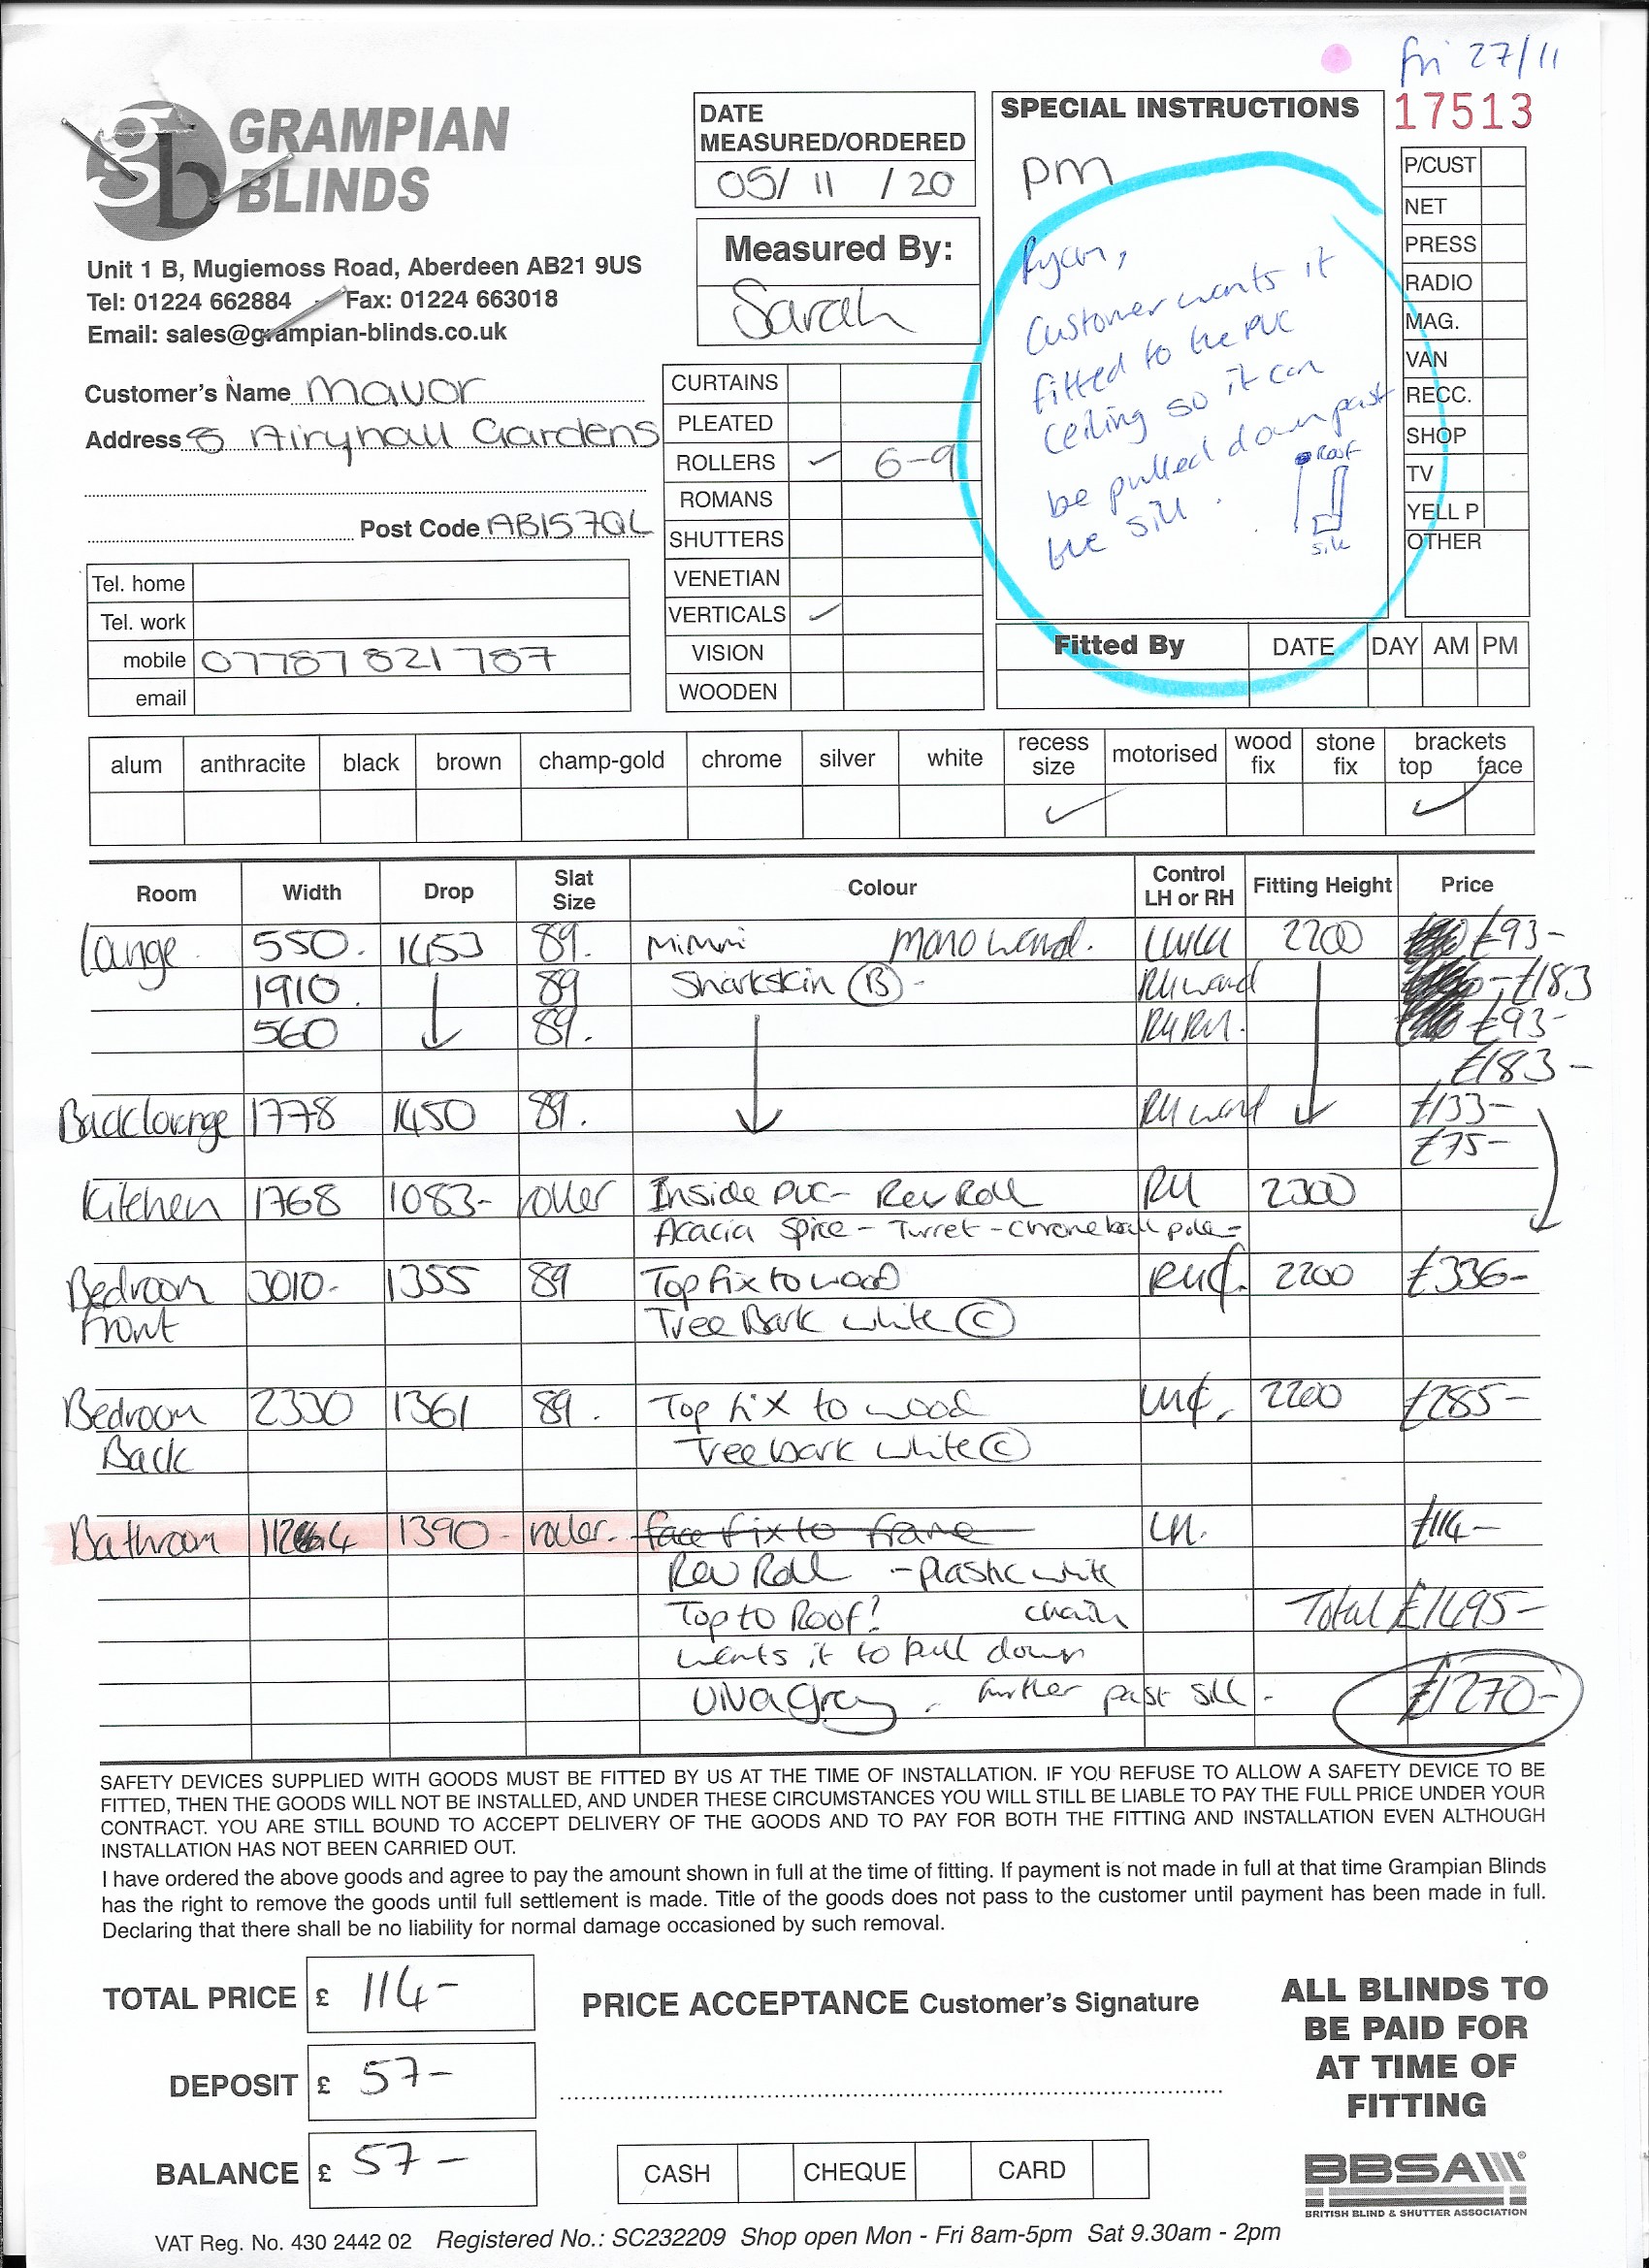 fri 27/11
17513
gb GRAMPIAN
BLINDS
Unit 1 B, Mugiemoss Road, Aberdeen AB21 9US
Tel: 01224 662884 Fax: 01224 663018
Email: sales@grampian-blinds.co.uk
Customer's Name Mavor
Address 8 Airyhall Gardens
Post Code AB157QL
Tel. home
Tel. work
mobile 07787 821 787
email
DATE
MEASURED/ORDERED
05/11/20
Measured By:
Sarah
CURTAINS
PLEATED
ROLLERS ✓ 6-9
ROMANS
SHUTTERS
VENETIAN
VERTICALS ✓
VISION
WOODEN
SPECIAL INSTRUCTIONS
pm
Ryan,
Customer wants it
fitted to the PVC
ceiling so it can
be pulled down past
the sill.
Roof
sill
P/CUST
NET
PRESS
RADIO
MAG.
VAN
RECC.
SHOP
TV
YELL P
OTHER
Fitted By DATE DAY AM PM
alum anthracite black brown champ-gold chrome silver white recess size motorised wood fix stone fix brackets top face
✓ ✓
Room Width Drop Slat Size Colour Control LH or RH Fitting Height Price
Lounge 550. 1453 89. Mimmi Mono wand. LHLH 2200 £93-
1910. 89 Sharkskin (B) - RH wand £183
560 89. RHRH. £93-
£183-
Back lounge 1778 1450 89. RH wand £133-
£75-
Kitchen 1768 1083- roller Inside PVC- Rev Roll RH 2300
Acacia Spice - Turret - chrome ball pole -
Bedroom 3010- 1355 89 Top fix to wood RH¢. 2200 £336-
Front Tree Bark white (C)
Bedroom 2330 1361 89. Top fix to wood LH¢. 2200 £285-
Back Tree bark white (C)
Bathroom 1390- roller. face fix to frame LH. £114-
Rev Roll - plastic white
Top to Roof? chain Total £1495-
wants it to pull down
UNA Grey. further past sill - £1270-
SAFETY DEVICES SUPPLIED WITH GOODS MUST BE FITTED BY US AT THE TIME OF INSTALLATION. IF YOU REFUSE TO ALLOW A SAFETY DEVICE TO BE
FITTED, THEN THE GOODS WILL NOT BE INSTALLED, AND UNDER THESE CIRCUMSTANCES YOU WILL STILL BE LIABLE TO PAY THE FULL PRICE UNDER YOUR
CONTRACT. YOU ARE STILL BOUND TO ACCEPT DELIVERY OF THE GOODS AND TO PAY FOR BOTH THE FITTING AND INSTALLATION EVEN ALTHOUGH
INSTALLATION HAS NOT BEEN CARRIED OUT.
I have ordered the above goods and agree to pay the amount shown in full at the time of fitting. If payment is not made in full at that time Grampian Blinds
has the right to remove the goods until full settlement is made. Title of the goods does not pass to the customer until payment has been made in full.
Declaring that there shall be no liability for normal damage occasioned by such removal.
TOTAL PRICE £ 114-
DEPOSIT £ 57-
BALANCE £ 57-
PRICE ACCEPTANCE Customer's Signature
CASH CHEQUE CARD
ALL BLINDS TO
BE PAID FOR
AT TIME OF
FITTING
BBSA
BRITISH BLIND & SHUTTER ASSOCIATION
VAT Reg. No. 430 2442 02 Registered No.: SC232209 Shop open Mon - Fri 8am-5pm Sat 9.30am - 2pm